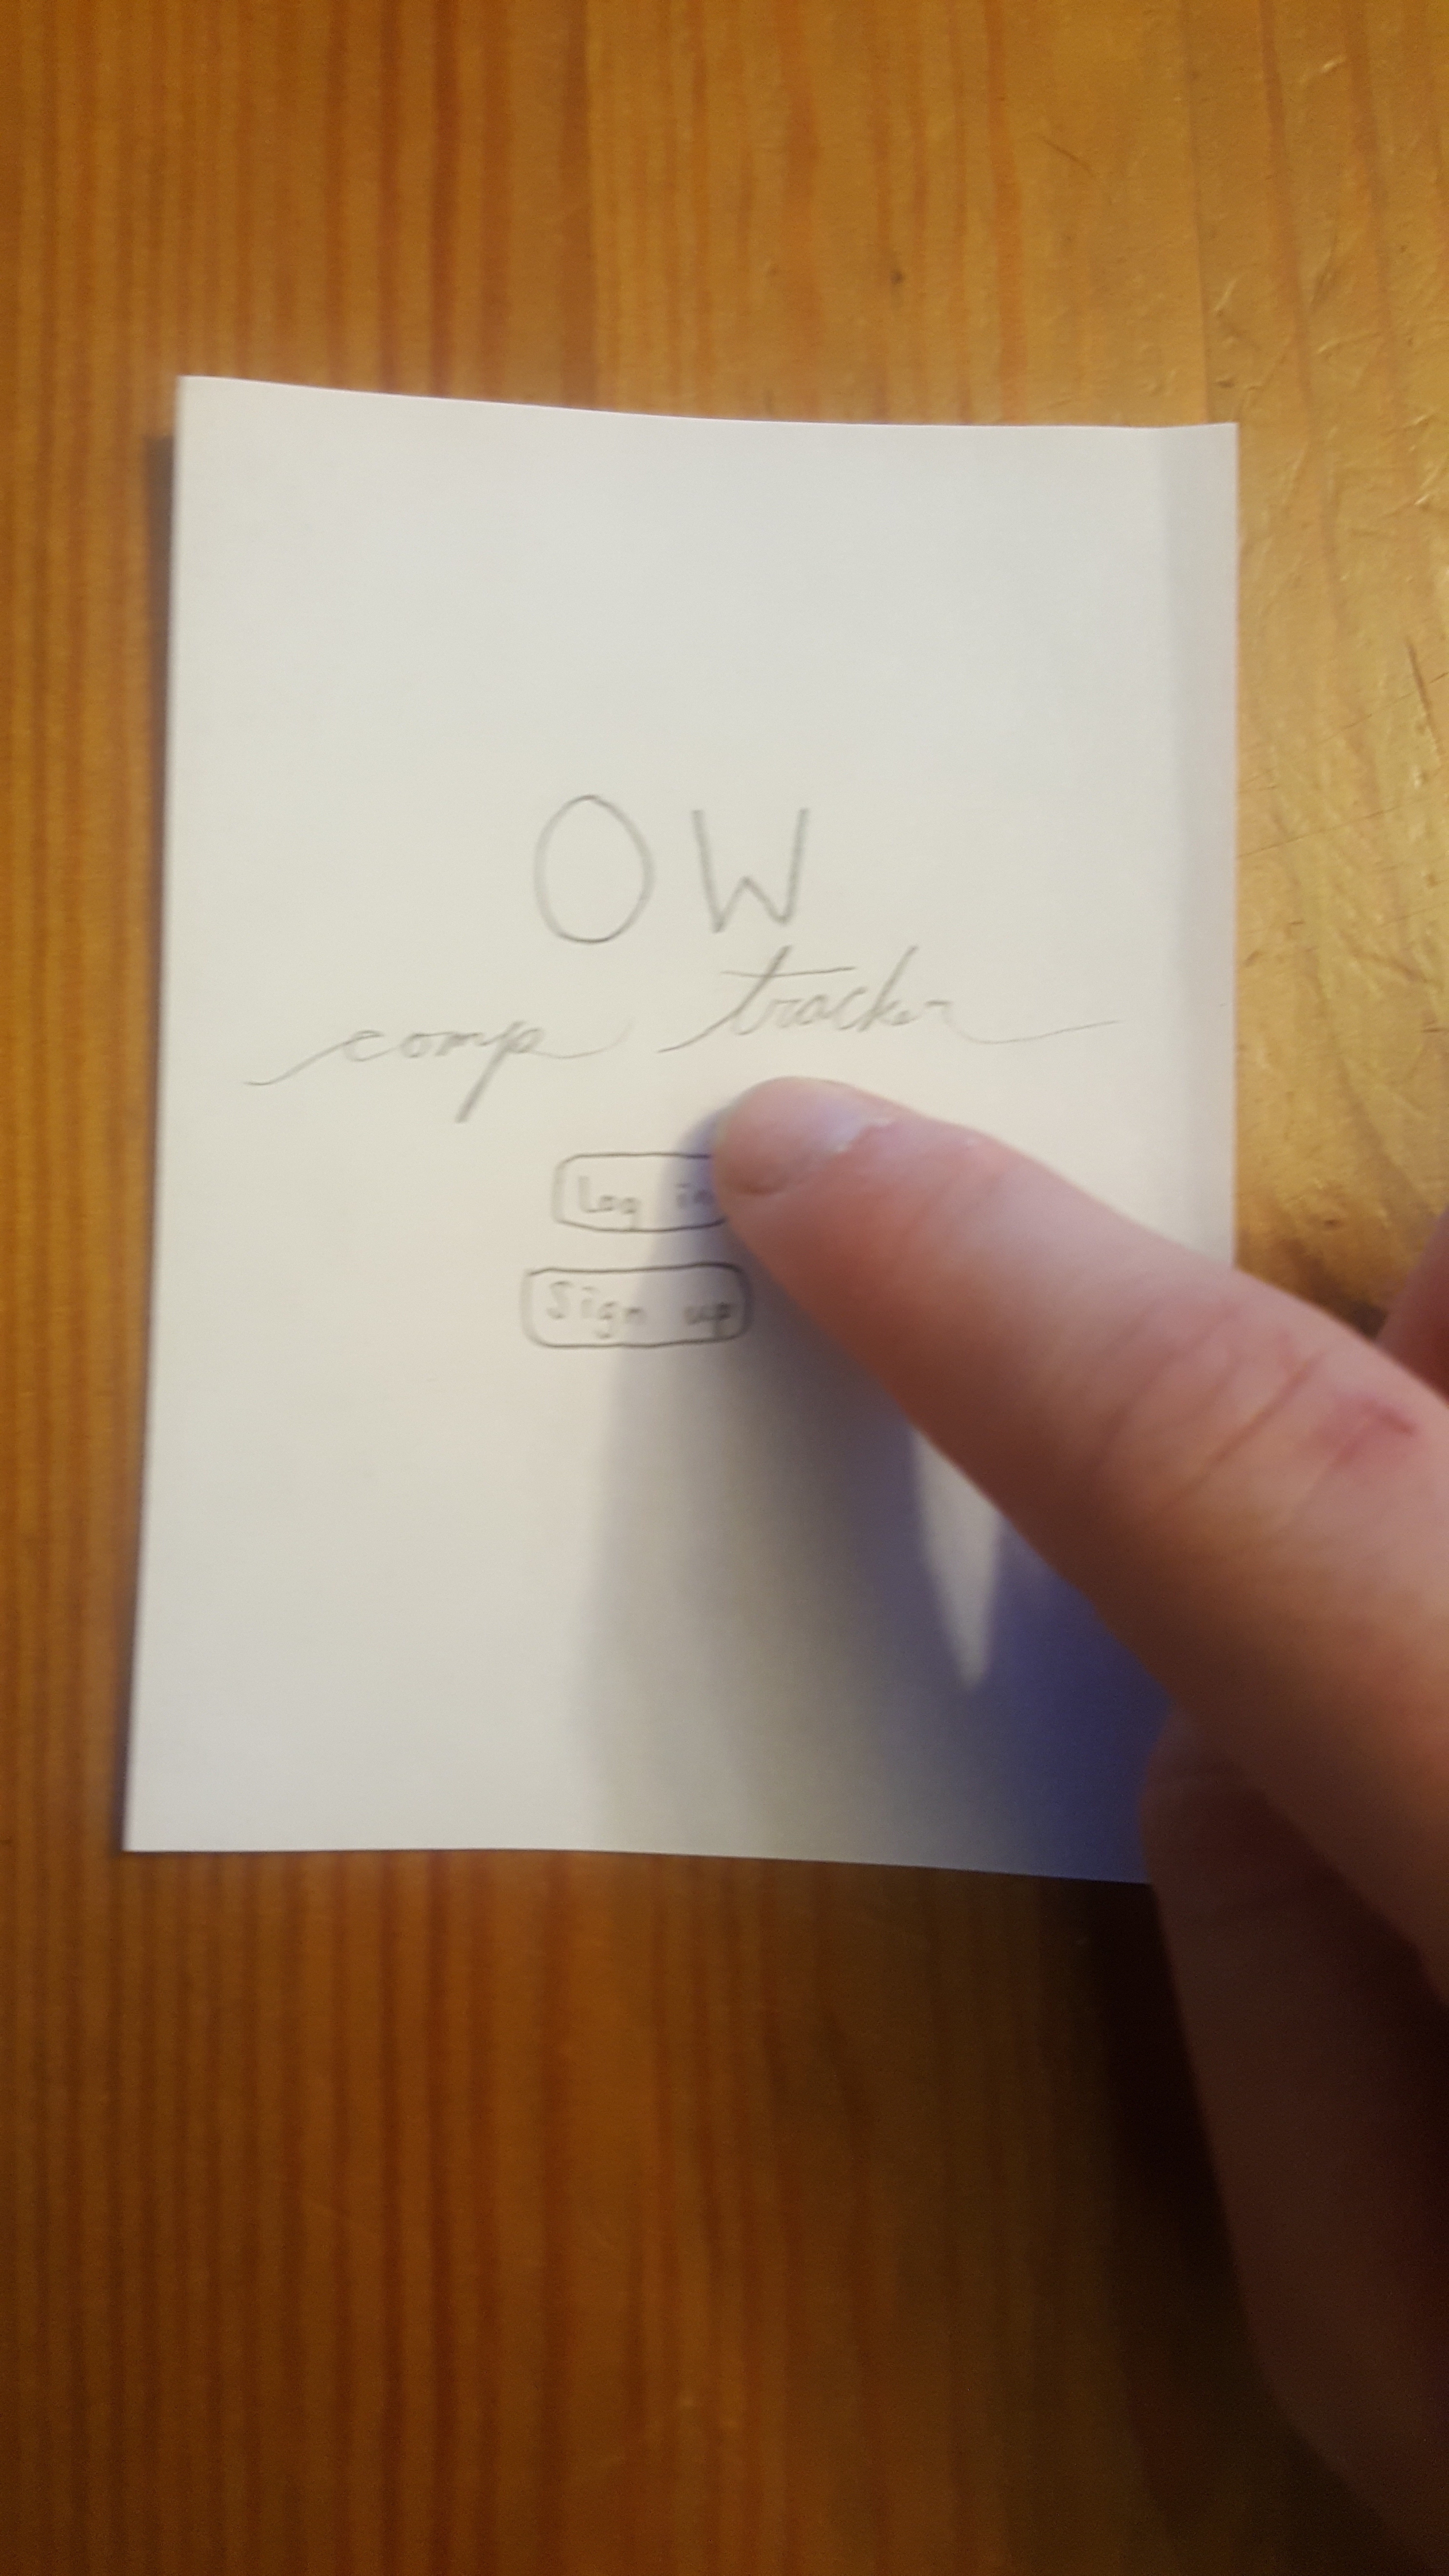 OW
comp tracker
Log in
Sign up